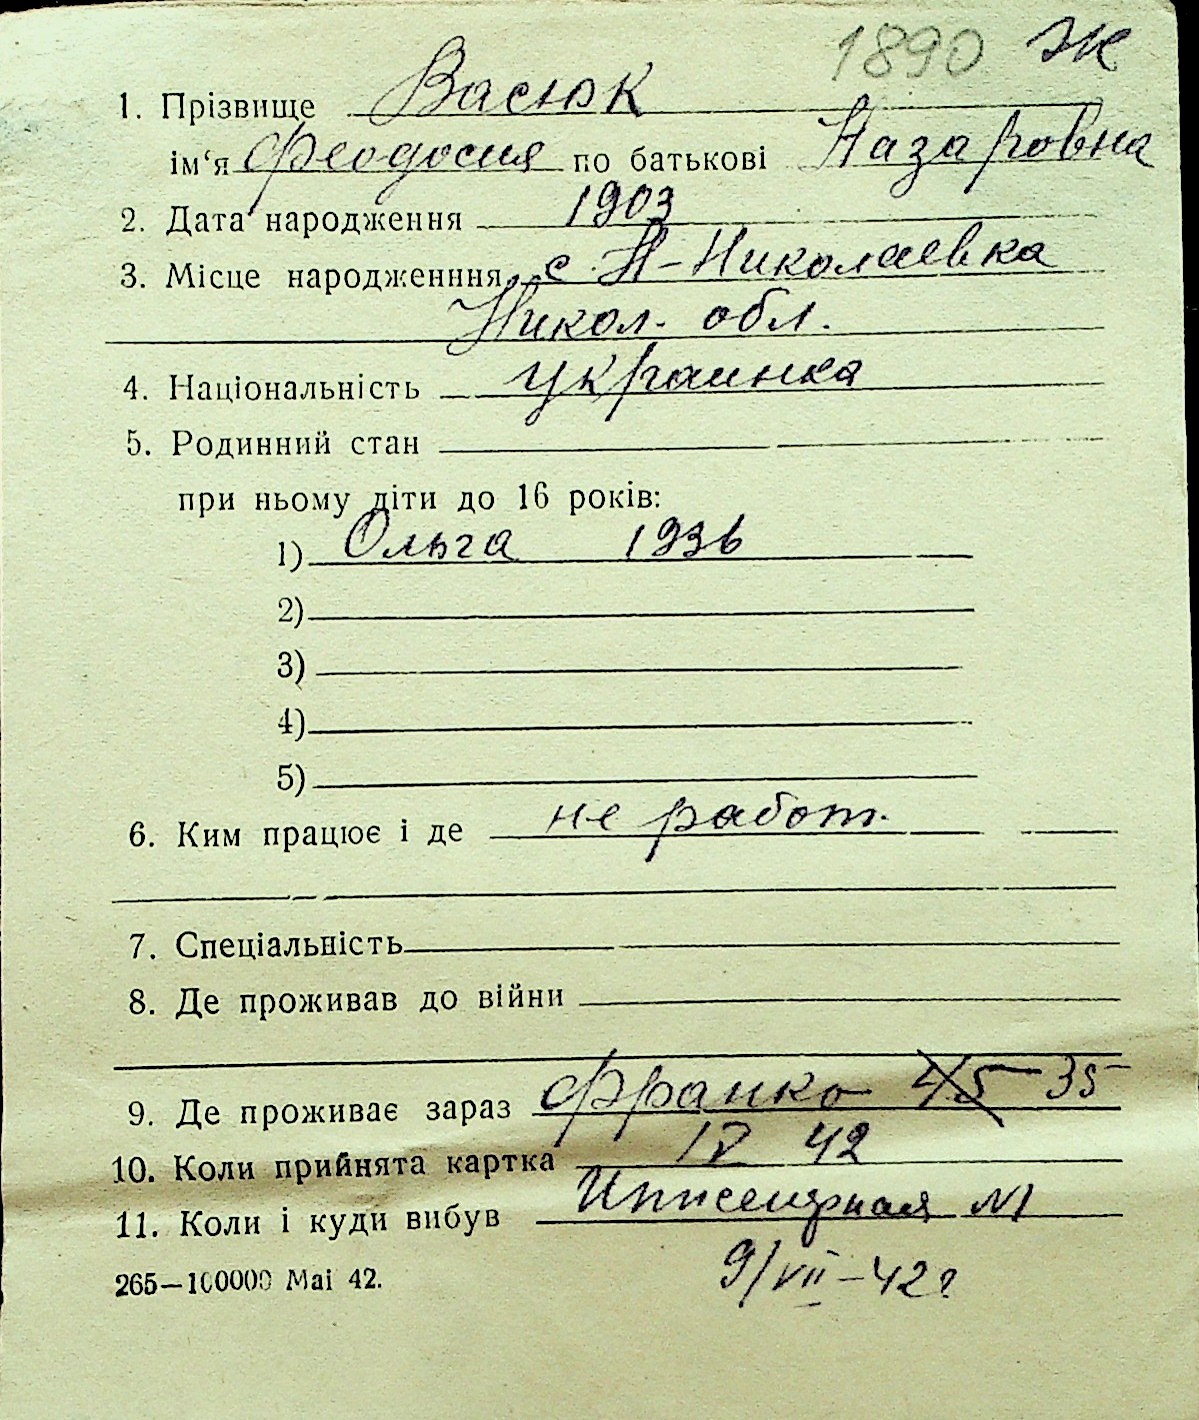 1890 Ж
1. Прізвище Васюк
ім‘я Феодосия по батькові Назаровна
2. Дата народження 1903
3. Місце народженння с. Н-Николаевка
Никол. обл.
4. Національність украинка
5. Родинний стан
при ньому діти до 16 років:
1) Ольга 1936
2)
3)
4)
5)
6. Ким працює і де не работ.
7. Спеціальність
8. Де проживав до війни
9. Де проживає зараз Франко 45 35
10. Коли прийнята картка IV 42
11. Коли і куди вибув Инженерная №1
265—100000 Mai 42. 9/VII-42г